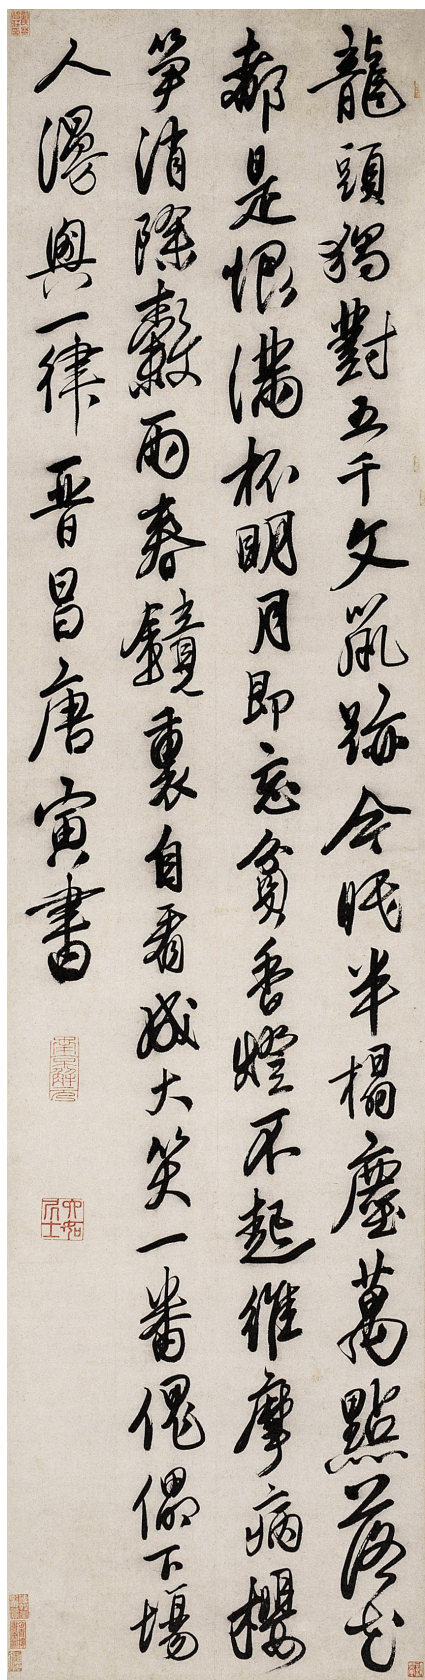 龍頭獨對五千文鼠跡今眠半榻塵萬點落花
都是恨滿杯明月即忘貧香燈不起維摩病櫻
笋消除穀雨春鏡裏自看成大笑一番傀儡下場
人漫興一律晋昌唐寅書
南京解元
六如居士